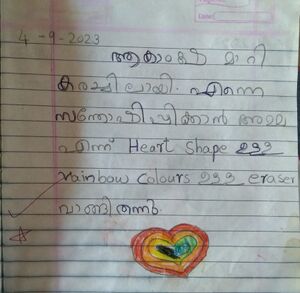 4-9-2023
മാറി
കരച്ചിലായി. എന്നെ
സന്തോഷിപ്പിക്കാൻ അമ്മ
എന്ന് Heart Shape ഉള്ള
rainbow colours ഉള്ള eraser
വാങ്ങി തന്നു.